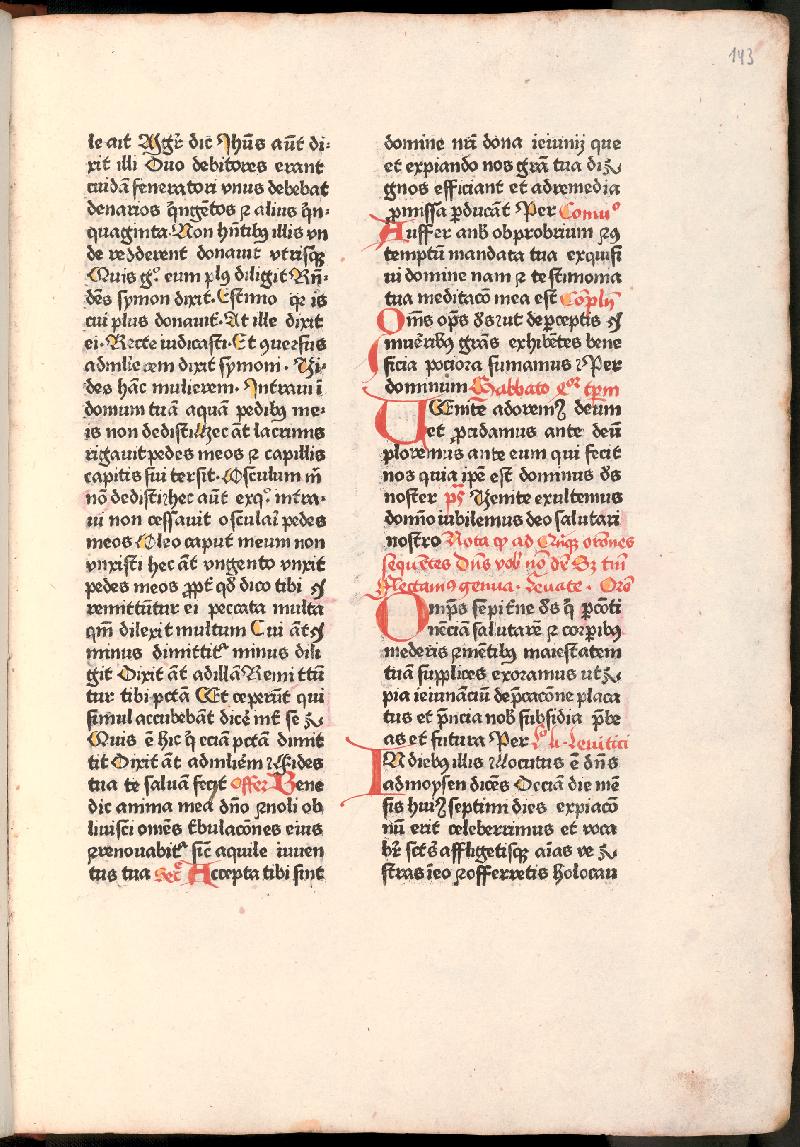 143
le ait Mgr̄ dic Jhūs aūt di-
xit illi Duo debitores erant
cuidā feneratori vnus debebat
denarios q̄ngētos ⁊ alius q̄n-
quaginta· Non hn̄tibꝰ illis vn
de redderent donauit vtrisqꝫ
Quis gͦ eum plꝰ diligit Rn̄-
dēs symon dixit· Estimo qꝛ is
cui plus donauit· At ille dixit
ei· Recte iudicasti· Et ꝯuersus
ad mulierem dixit symoni· Vi-
des hāc mulierem· Intraui ī
domum tuā aquā pedibꝰ me-
is non dedisti hec āt lacrimis
rigauit pedes meos ⁊ capillis
capitis sui tersit· Osculum m̄
nō dedisti hec aūt exqͦ intra-
ui non cessauit osculari pedes
meos Oleo caput meum non
vnxisti hec āt vngento vnxit
pedes meos ꝓpt̄ qđ dico tibi
remittūtur ei peccata multa
qm̄ dilexit multum Cui āt
minus dimittitᷣ minus dili
git Dixit āt ad illā Remittū
tur tibi pctā Et ceperūt qui
simul accubebāt dicē int̄ se
Quis ē hic q̄ eciā pctā dimit
tit Dixit āt ad muliēm Fides
tua te saluā fecit Offer Bene
dic anima mea dn̄o ⁊ noli ob
liuisci omēs t̄bulacōnes eius
⁊ renouabitᷣ sic̄ aquile iuuen
tus tua Secͭ Accepta tibi sint
domine nr̄i dona ieiunij que
et expiando nos grā tua di
gnos efficiant et ad remedia
ꝓmissa ꝑducāt Per Comuͦ
Auffer a me obprobrium ⁊ ꝯ
temptū mandata tua exquisi
ui domine nam ⁊ testimonia
tua meditacō mea est Cōplēn
Om̄s op̄s ds̄ vt de perceptis
muēribꝰ grās exhibētes bene
ficia pociora sumamus Per
dominum Sabbato qͦr tꝑm
VEnite adoremꝰ deum
et ꝓcidamus ante deū
ploremus ante eum qui fecit
nos quia ip̄e est dominus ds̄
noster ps̄ Venite exultemus
domīo iubilemus deo salutari
nostro Nota ꝙ ad qn̄qꝫ orōnes
sequētes Dn̄s vob̄ nō dr̄ Sꝫ tm̄
Flectamꝰ genua· Leuate· Orō
Omp̄s sempit̄ne ds̄ q̄ ꝑ cōti
nēciā salutarē ⁊ corꝑibꝰ
mederis ⁊ mentibꝰ maiestatem
tuā supplices exoramus vt
pia ieiunāciū dep̄cacōne placa
tus et p̄ncia nob̄ subsidia p̄be
as et futura Per Lͨo li· Leuitici
IN diebꝰ illis Locutus ē dn̄s
ad moysen dicēs Deciā die mē
sis huiꝰ septimi dies expiacō
nū erit celeberrimus et voca
br̄ sctūs affligetisqꝫ aīas ve
stras ī eo ⁊ offerretis holocau